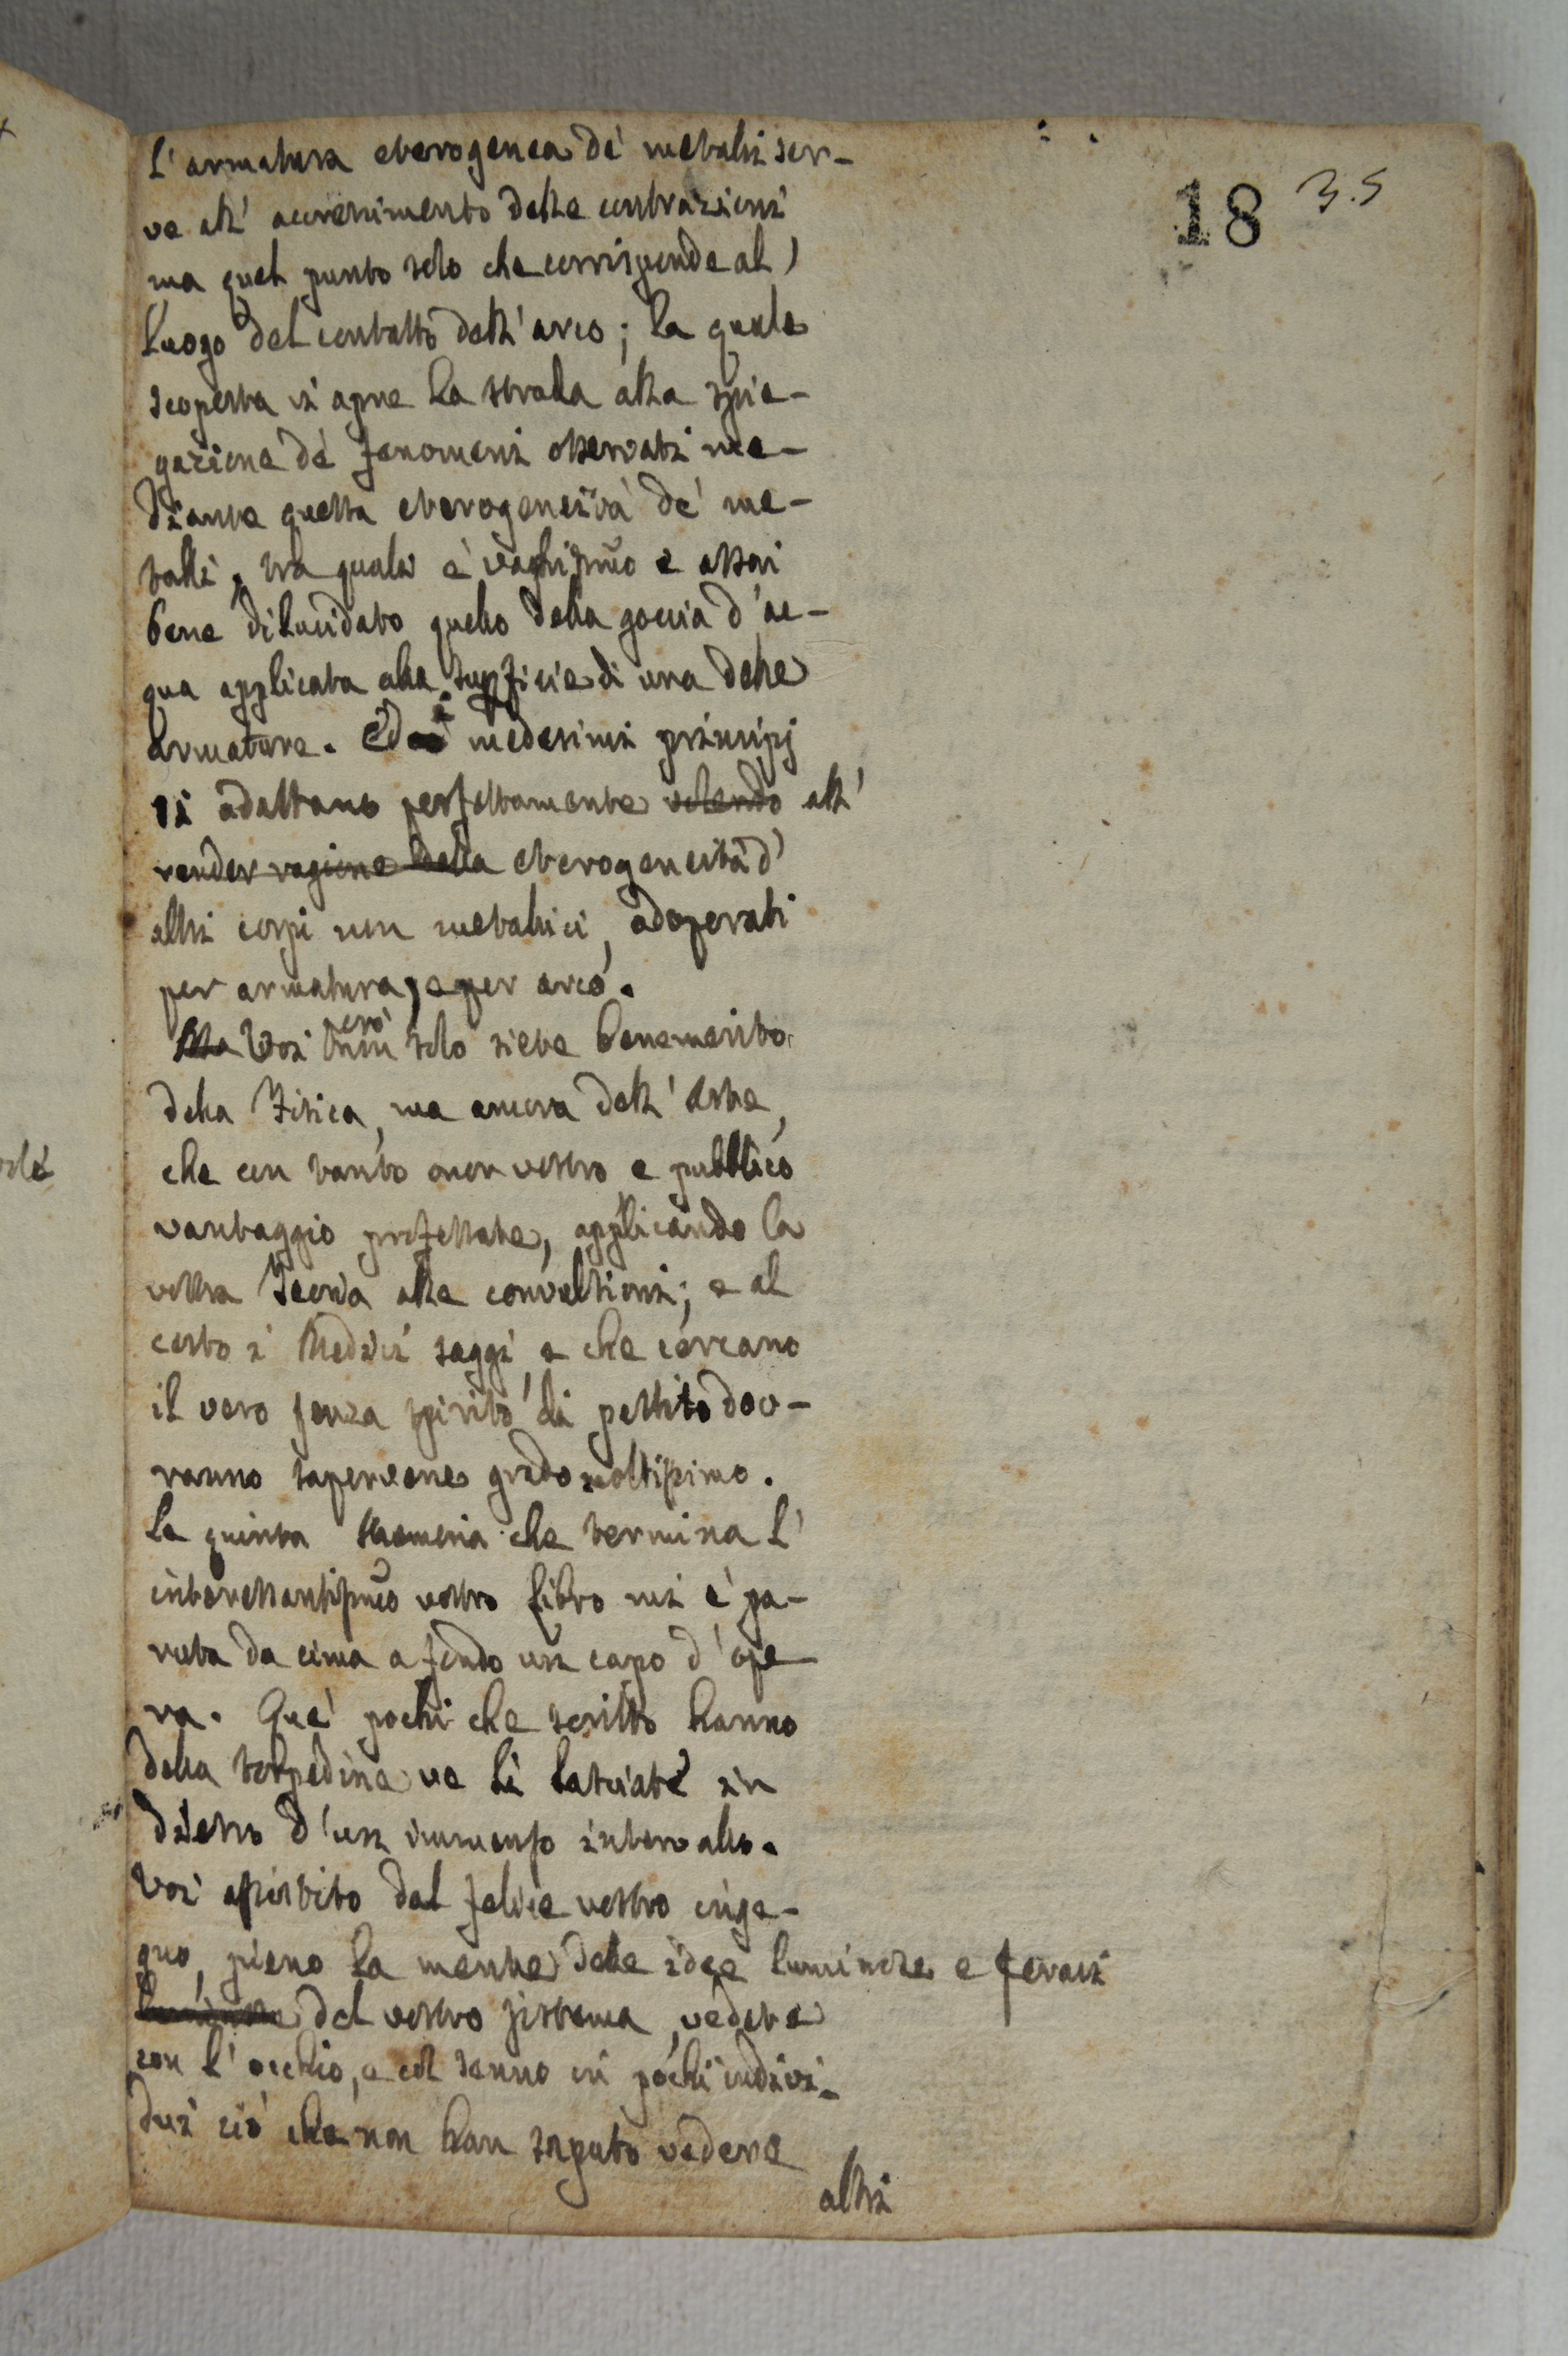 18 35
L'armatura eterogenea de' metalli ser-
ve all' accrescimento delle contrazioni
ma quel punto solo che corrisponde al
luogo del contatto dell' arco; la quale
scoperta vi apre la strada alla spie-
gazione de' fenomeni osservati me-
diante questa eterogeneità de' me-
talli, tra quali è vaghissimo e assai
bene dilucidato quello della goccia d'ac-
qua applicata alla superficie di una delle
armature. Ed i medesimi principj
si adattano perfettamente volendo all'
render ragione della eterogeneità d'
altri corpi non metallici, adoperati
per armatura, e per arco.
Ma Voi però non solo siete benemerito
della Fisica, ma ancora dell' Arte,
che con tanto onor vostro e pubblico
vantaggio professate, applicando la
vostra Teoria alle convulsioni; e al
certo i Medici saggi, e che cercano
il vero senza spirito di partito dov-
ranno sapervene grado moltissimo.
La quinta Memoria che termina l'
interessantissimo vostro libro mi è pa-
ruta da cima a fondo un capo d'ope
ra. Que' pochi che scritto hanno
della torpedine ve li lasciate in
dietro d'un immenso intervallo.
Voi assistito dal felice vostro inge-
gno, pieno la mente delle idee luminose e feraci
luminose del vostro sistema, vedete
con l'occhio, e col senno in pochi indivi-
dui ciò che non han saputo vedere
altri